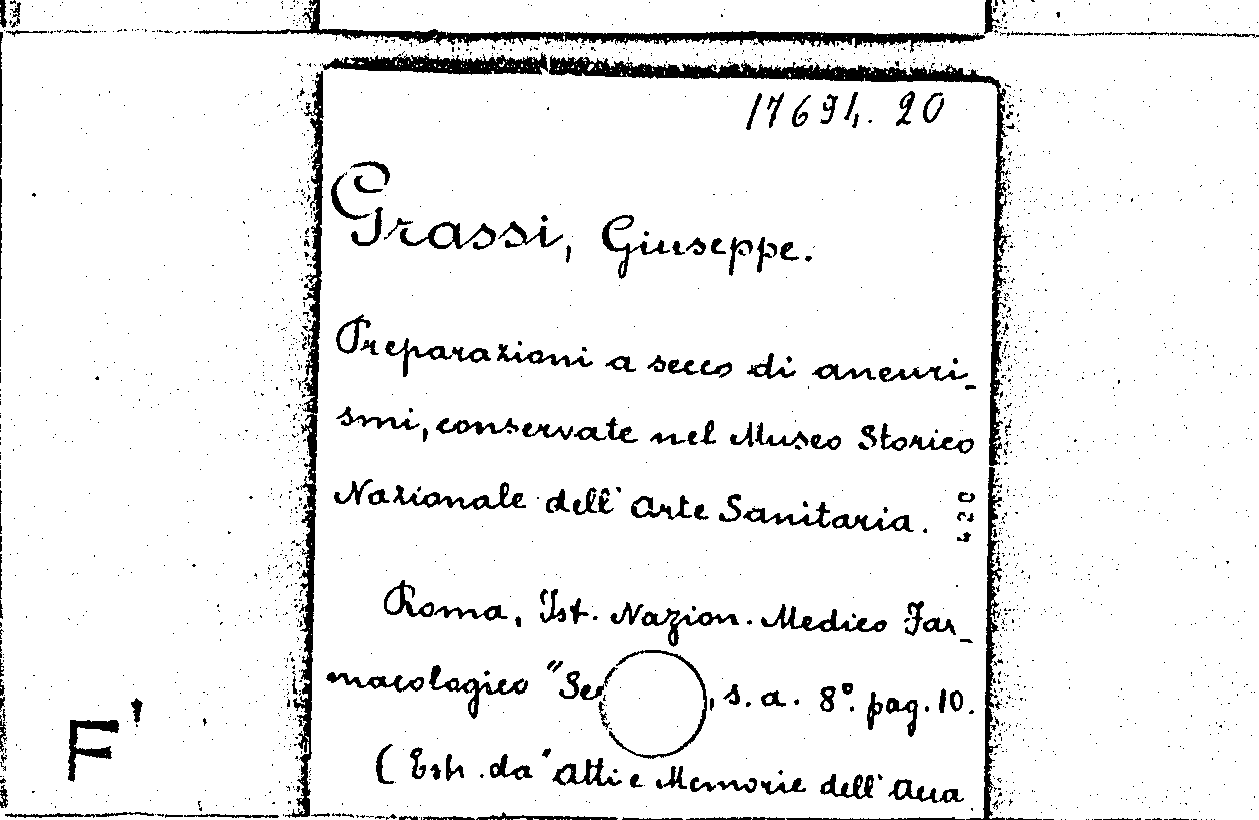 17691. 20
Grassi, Giuseppe.
Preparazioni a secco di aneuri-
smi, conservate nel Museo Storico
Nazionale dell' Arte Sanitaria.
420
Roma, Ist. Nazion. Medico Far-
macologico "Se , s. a. 8°. pag. 10.
(Estr. da "Atti e Memorie dell' Acca
F'